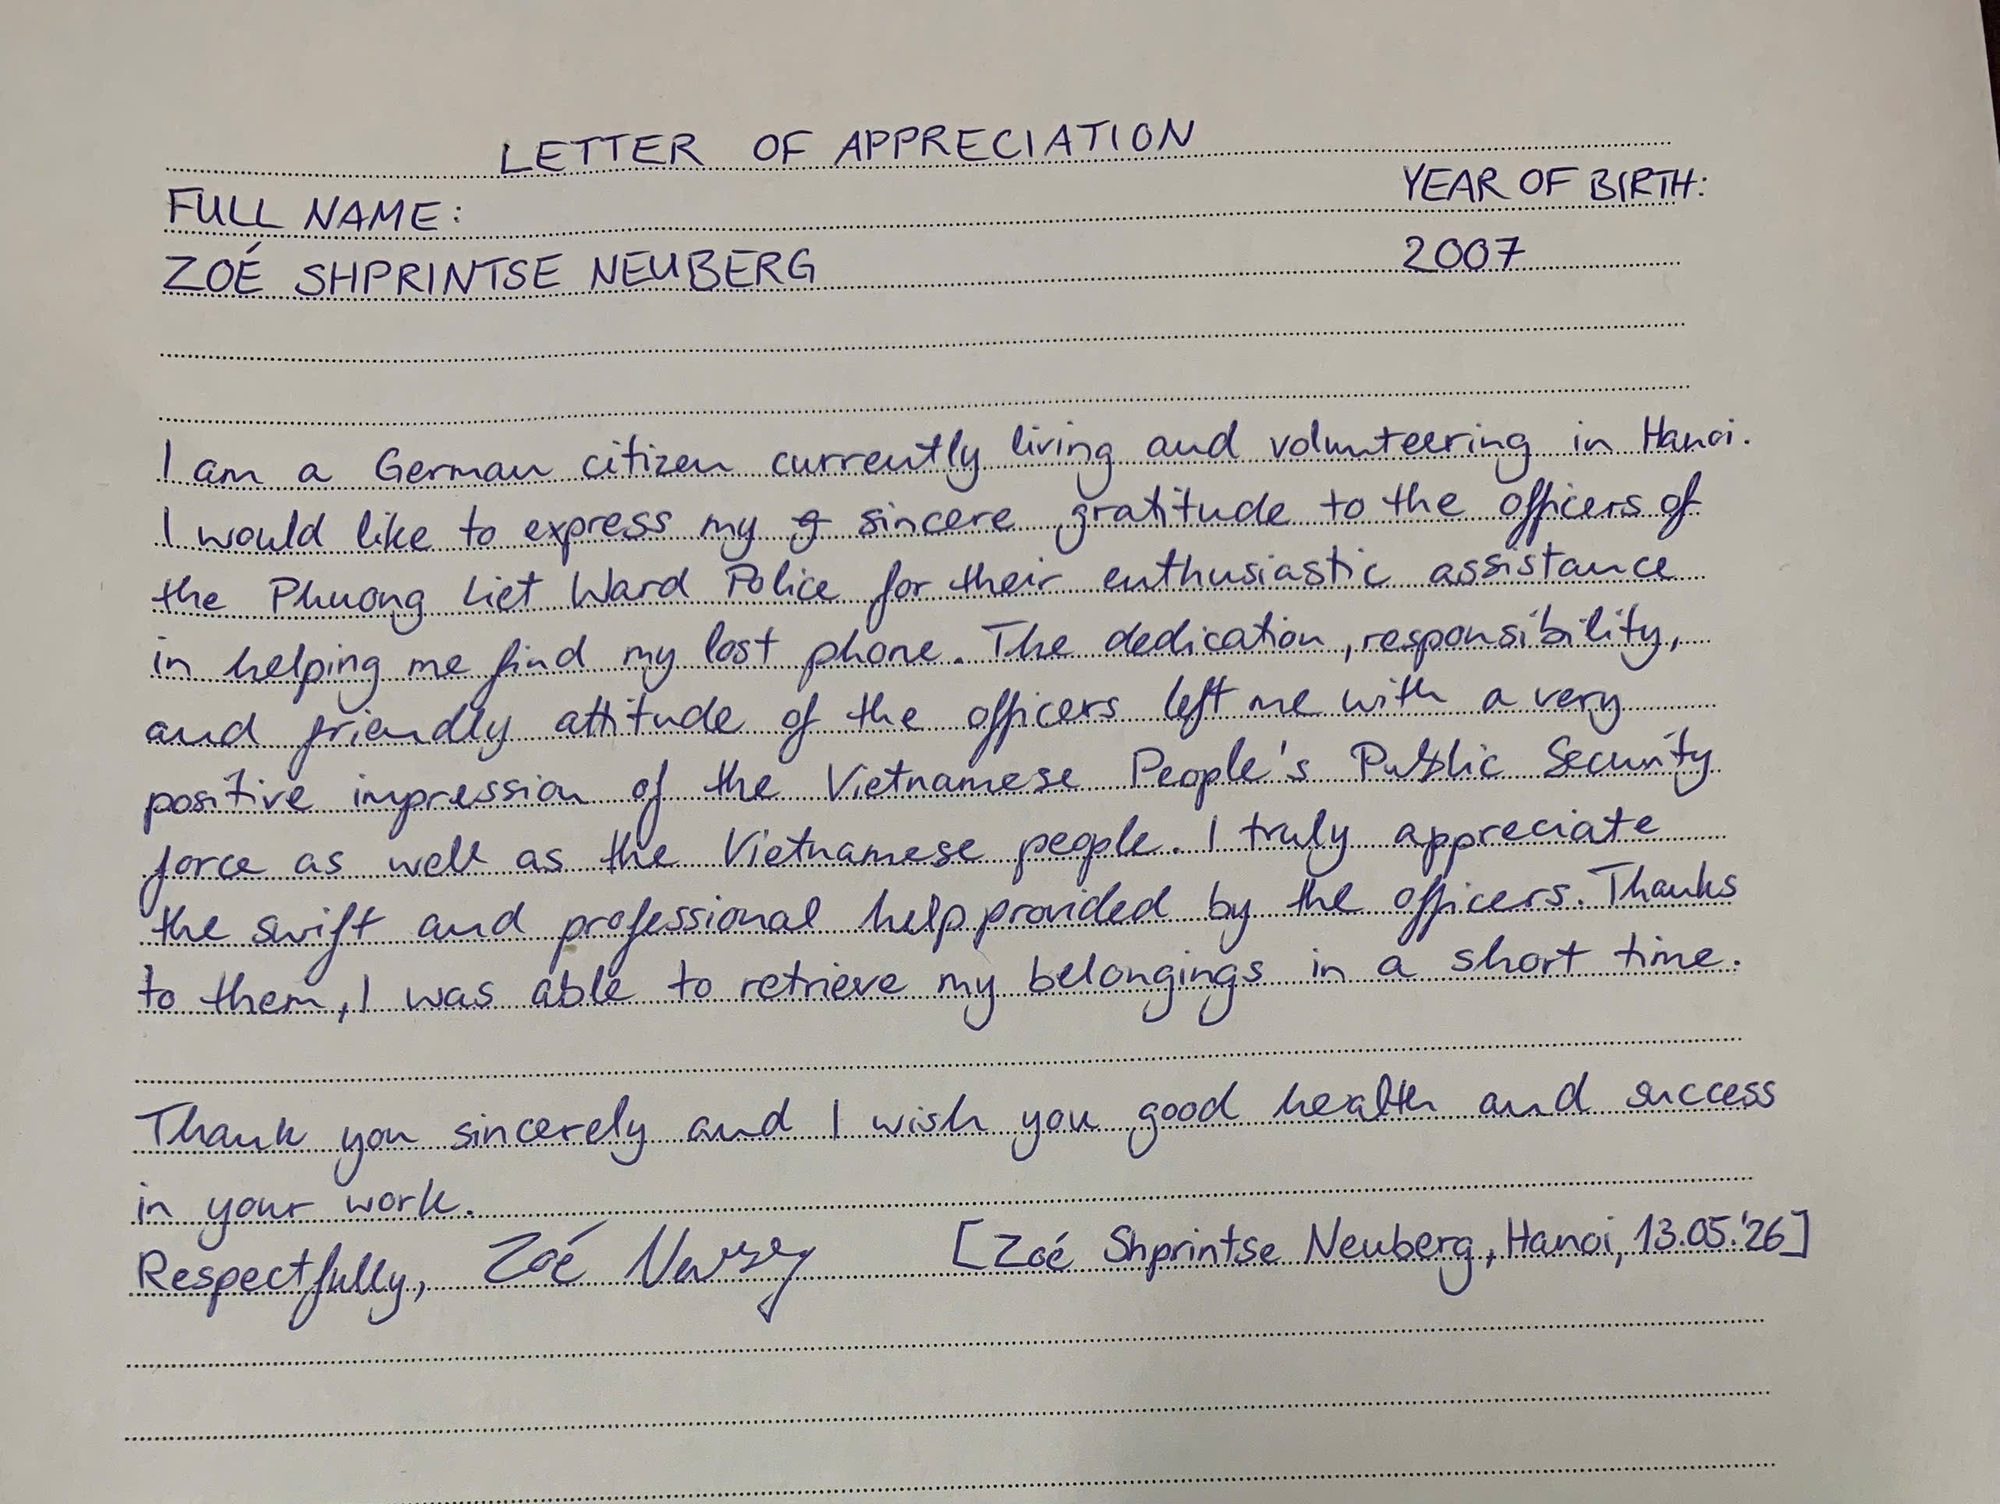 LETTER OF APPRECIATION
FULL NAME: YEAR OF BIRTH:
ZOÉ SHPRINTSE NEUBERG 2007
I am a German citizen currently living and volunteering in Hanoi.
I would like to express my sincere gratitude to the officers of
the Phuong Liet Ward Police for their enthusiastic assistance
in helping me find my lost phone. The dedication, responsibility,
and friendly attitude of the officers left me with a very
positive impression of the Vietnamese People's Public Security
force as well as the Vietnamese people. I truly appreciate
the swift and professional help provided by the officers. Thanks
to them, I was able to retrieve my belongings in a short time.
Thank you sincerely and I wish you good health and success
in your work.
Respectfully, Zoé Neuberg [Zoé Shprintse Neuberg, Hanoi, 13.05.'26]